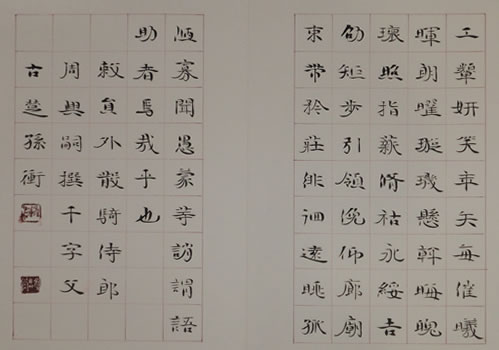 工顰妍笑年矢每催曦
暉朗曜璇璣懸斡晦魄
環照指薪脩祜永綏吉
劭矩步引領俛仰廊廟
束帶矜莊徘徊遠眺孤
陋寡聞愚蒙等誚謂語
助者焉哉乎也
敕員外散騎侍郎
周興嗣撰千字文
古楚孫衝